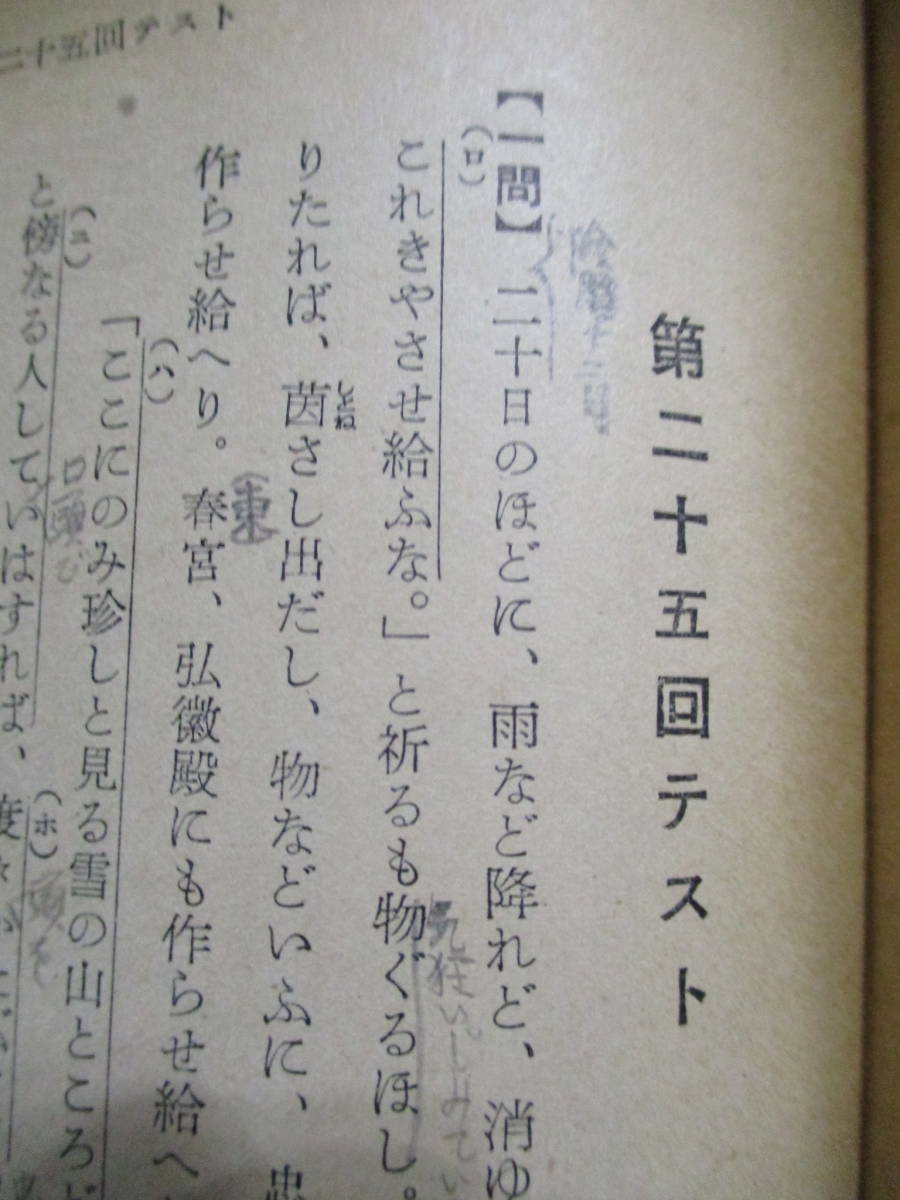 二十五回テスト
第二十五回テスト
陰暦十二
【一問】二十日のほどに、雨など降れど、消ゆ
(ロ)
これきやさせ給ふな。」と祈るも物ぐるほし。
気狂いじみてい
りたれば、茵さし出だし、物などいふに、忠
しとね
作らせ給へり。春宮、弘徽殿にも作らせ給へ
(東
(ハ)
「ここにのみ珍しと見る雪の山ところ
口頭で
(ニ)
と傍なる人していはすれば、
(ホ)